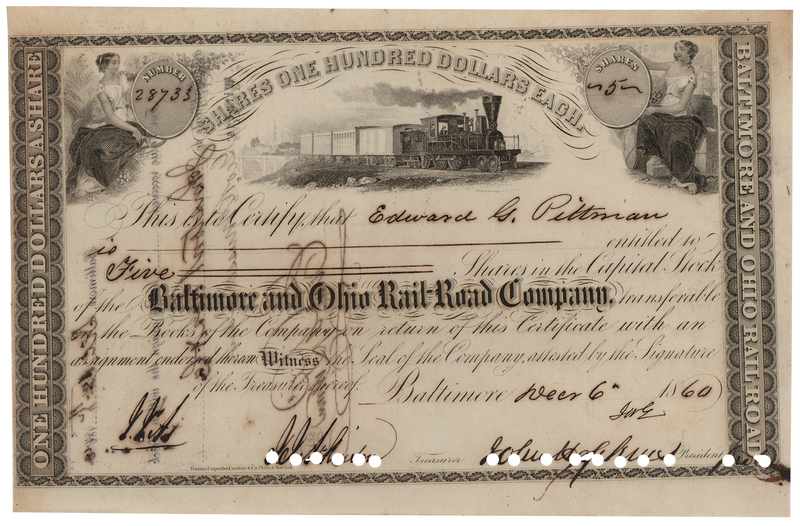 NUMBER
28733
SHARES ONE HUNDRED DOLLARS EACH.
SHARES
5
ONE HUNDRED DOLLARS A SHARE
BALTIMORE AND OHIO RAIL-ROAD
This is to Certify, that Edward G. Pittman
is entitled to
Five Shares in the Capital Stock
of the Baltimore and Ohio Rail-Road Company, transferable
on the Books of the Company on return of this Certificate with an
assignment endorsed thereon Witness the Seal of the Company, attested by the Signature
of the Treasurer thereof. Baltimore Decr 6th 1860
Treasurer
President